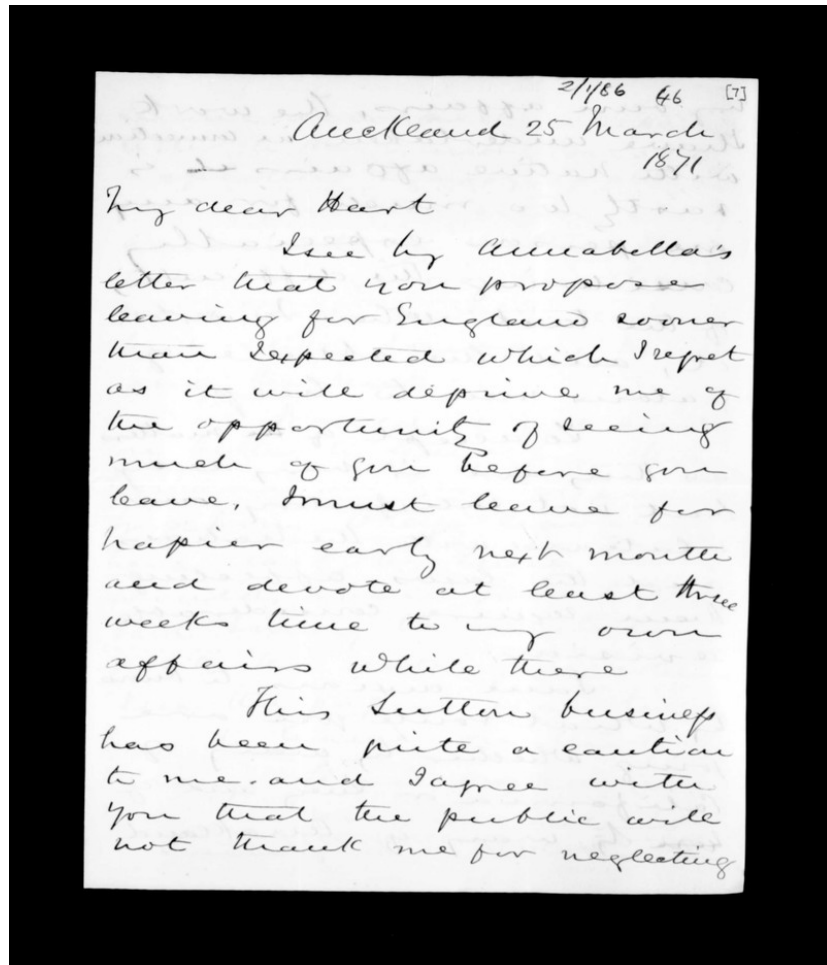 2/1/86 46 [7]
Auckland 25 March
1871
My dear Hart
I see by Annabella's
letter that you propose
leaving for England sooner
than I expected which I regret
as it will deprive me of
the opportunity of seeing
much of you before you
leave, I must leave for
Napier early next month
and devote at least three
weeks time to my own
affairs while there
This Sutton business
has been quite a caution
to me. and I agree with
you that the public will
not thank me for neglecting